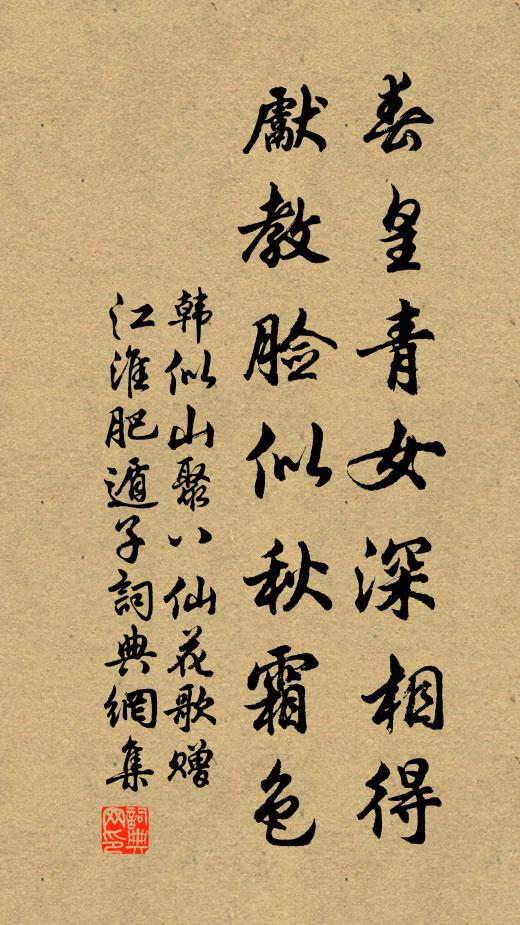 春皇青女深相得
獻教脸似秋霜色
韩似山聚八仙花歌赠
江淮肥遁子詞典網集
詞典
网印